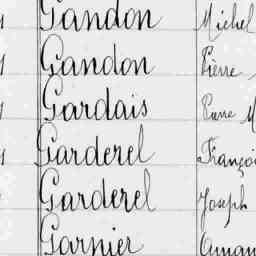 Gandon Michel
Gandon Pierre
Gardais Pierre M
Garderel Françoi
Garderel Joseph
Garnier Aman